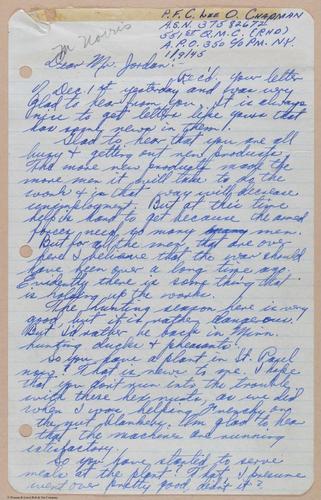 P.F.C. Leo O. Chapman
A.S.N. 37582672
551st Q.M.C. (RHD)
A.P.O. 350 c/o P.M. N.Y.
1/9/45
M Norris
Dear Mr. Jordan:
Rec'd. your letter
of Dec. 1st yesterday and was very
glad to hear from you. It is always
nice to get letters like yours that
has some news in them!
Glad to hear that you are all
busy & getting out new products.
The more new products made the
more men it will take to do the
work & in that way will decrease
unemployment. But at this time
help is hard to get because the armed
forces need so many men.
But for all the men that are over
here I believe that the war should
have been over a long time ago.
Evidently there is some thing that
is holding up the works.
The hunting season here is very
good but it is rather dangerous.
But I'd rather be back in Minn.
hunting ducks & pheasants!
So you have a plant in St. Paul
now? That is news to me. I hope
that you don't run into the trouble
with these hex nuts, as we did
when I was helping Hrensky on
the nut blankety. I'm glad to hear
that the machines are running
satisfactory.
So you have started to serve
meals at the plant. That I presume
went over pretty good didn't it?